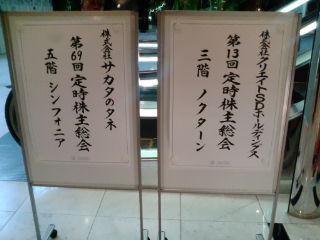 株式会社サカタのタネ
第69回 定時株主総会
五階 シンフォニア
株式会社クリエイトSDホールディングス
第13回 定時株主総会
三階 ノクターン